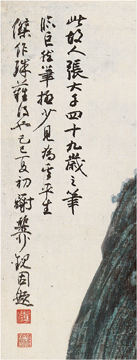 此故人張大千四十九歲之筆
臨巨然筆極少見為平生
傑作殊難得也己巳夏初謝稚柳觀因題